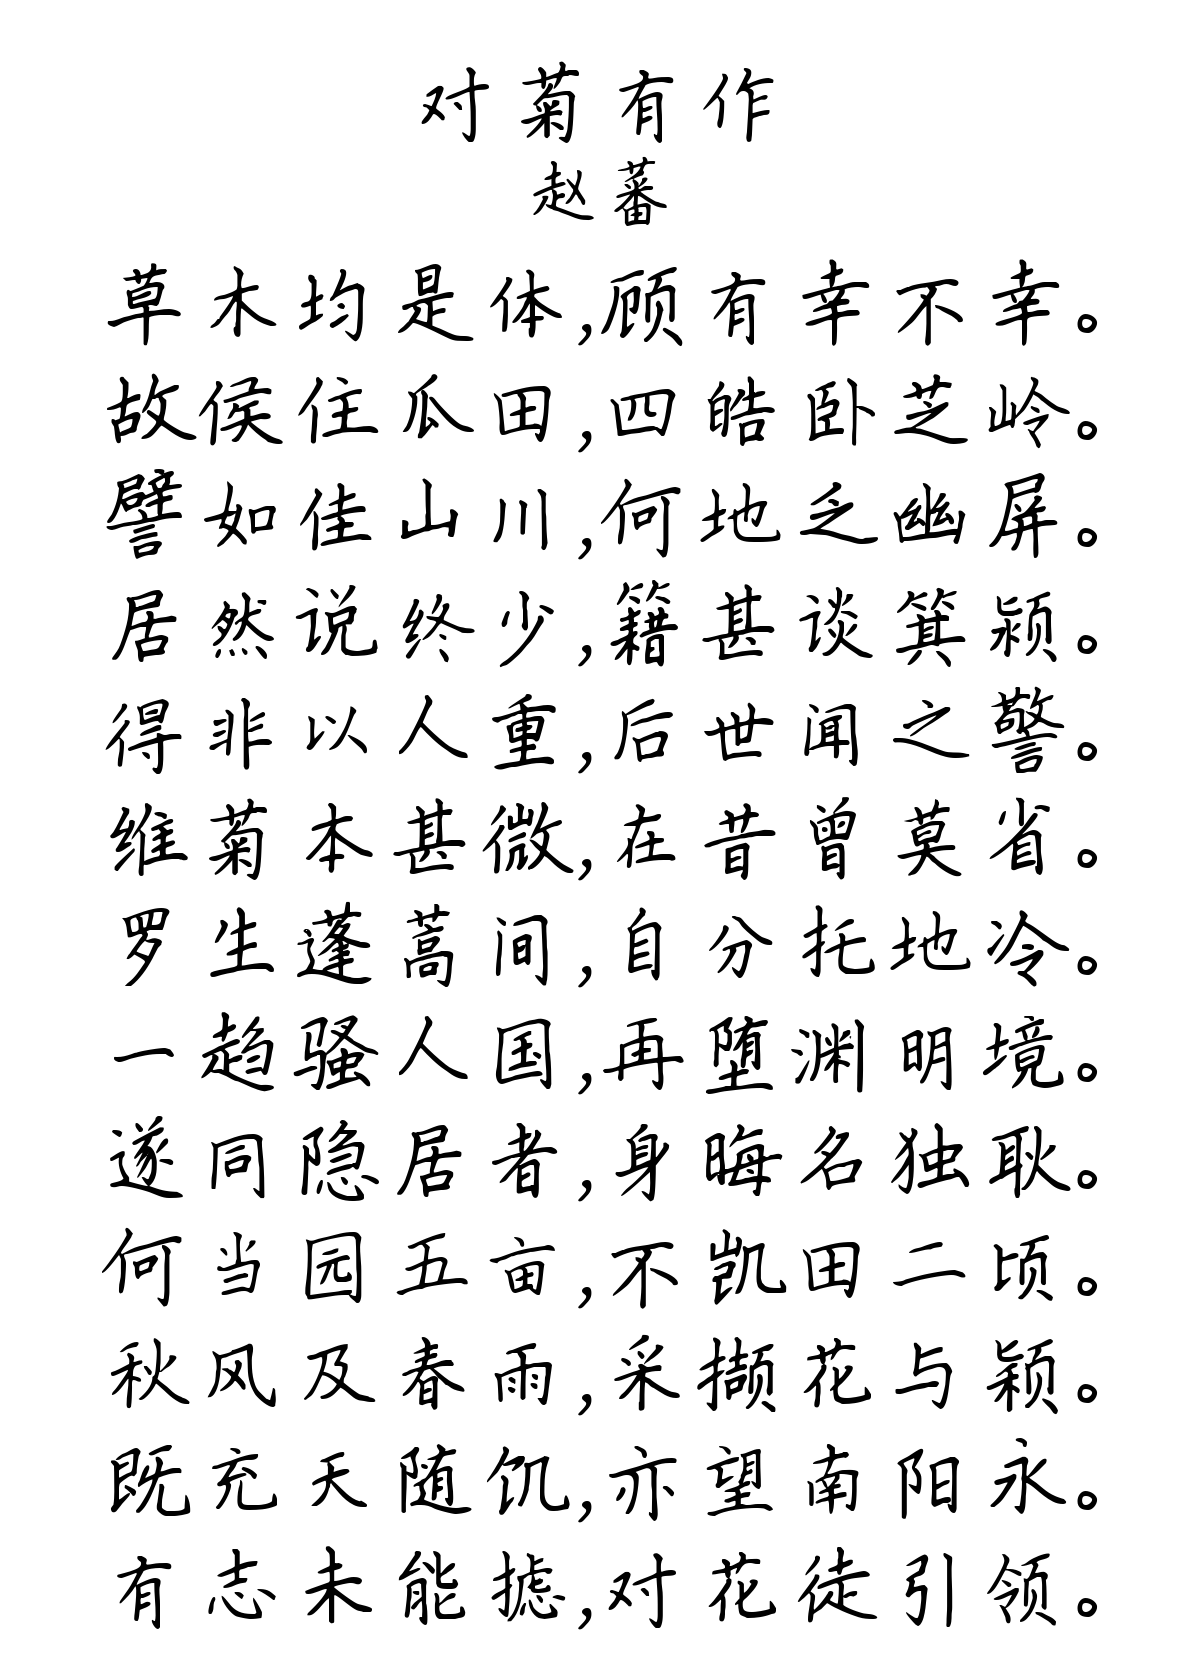 对菊有作
赵蕃
草木均是体,顾有幸不幸。
故侯住瓜田,四皓卧芝岭。
譬如佳山川,何地乏幽屏。
居然说终少,籍甚谈箕颍。
得非以人重,后世闻之警。
维菊本甚微,在昔曾莫省。
罗生蓬蒿间,自分托地冷。
一趋骚人国,再堕渊明境。
遂同隐居者,身晦名独耿。
何当园五亩,不凯田二顷。
秋风及春雨,采撷花与颖。
既充天随饥,亦望南阳永。
有志未能摅,对花徒引领。